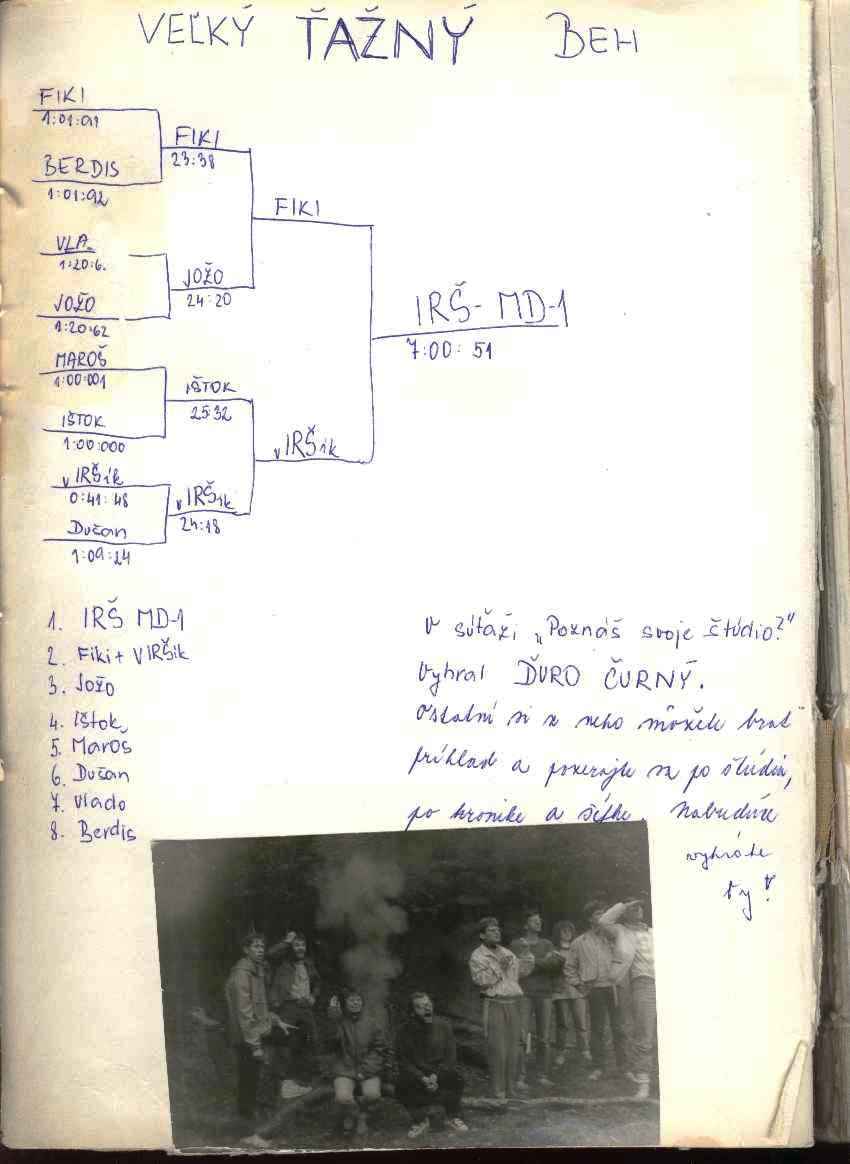 VEĽKÝ ŤAŽNÝ BEH
FIKI
1:01:91
BERDIS
1:01:92
VLA.
1:20:6.
JOŽO
1:20:62
MAROŠ
1:00:001
IŠTOK
1:00:000
vIRŠik
0:41:48
Dušan
1:09:24
FIKI
23:38
JOŽO
24:20
IŠTOK
25:32
vIRŠik
24:18
FIKI
vIRŠik
IRŠ-MD-1
7:00:51
1. IRŠ MD-1
2. Fiki + VIRŠik
3. Jožo
4. Ištok
5. Maroš
6. Dušan
7. Vlado
8. Berdis
V súťaži „Poznáš svoje štúdio?"
Vyhral ĎURO ČURNÝ.
Ostatní si z neho môžete brať
príklad a pozerajte sa po štúdiu,
po kronike a sieťke. Nabudúce
vyhráte
ty!